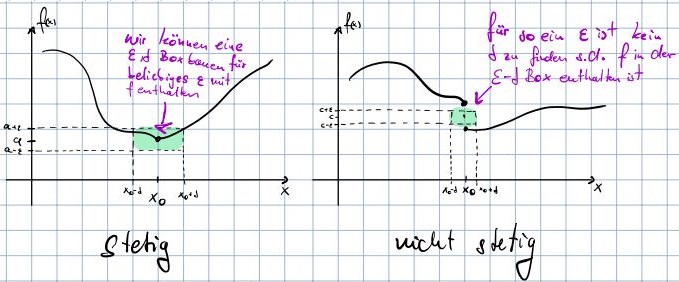 f(x)
wir können eine
ε δ Box bauen für
beliebiges ε mit
f enthalten
a+ε
a
a-ε
x₀-δ
x₀
x₀+δ
x
stetig
f(x)
für so ein ε ist kein
δ zu finden s.d. f in der
ε-δ Box enthalten ist
c+ε
c
c-ε
x₀-δ
x₀
x₀+δ
x
nicht stetig